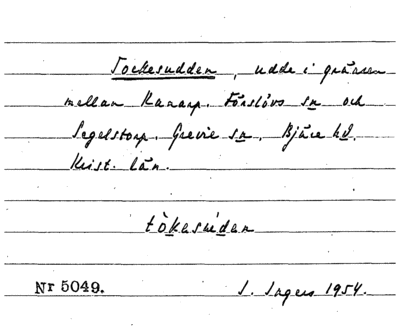 Tockesudden, udde i gränsen
mellan Ranarp, Förslövs sn och
Segelstorp, Grevie sn, Bjäre hd.
Krist. län.
tòkesúdan
Nr 5049. S. Ingers 1954.